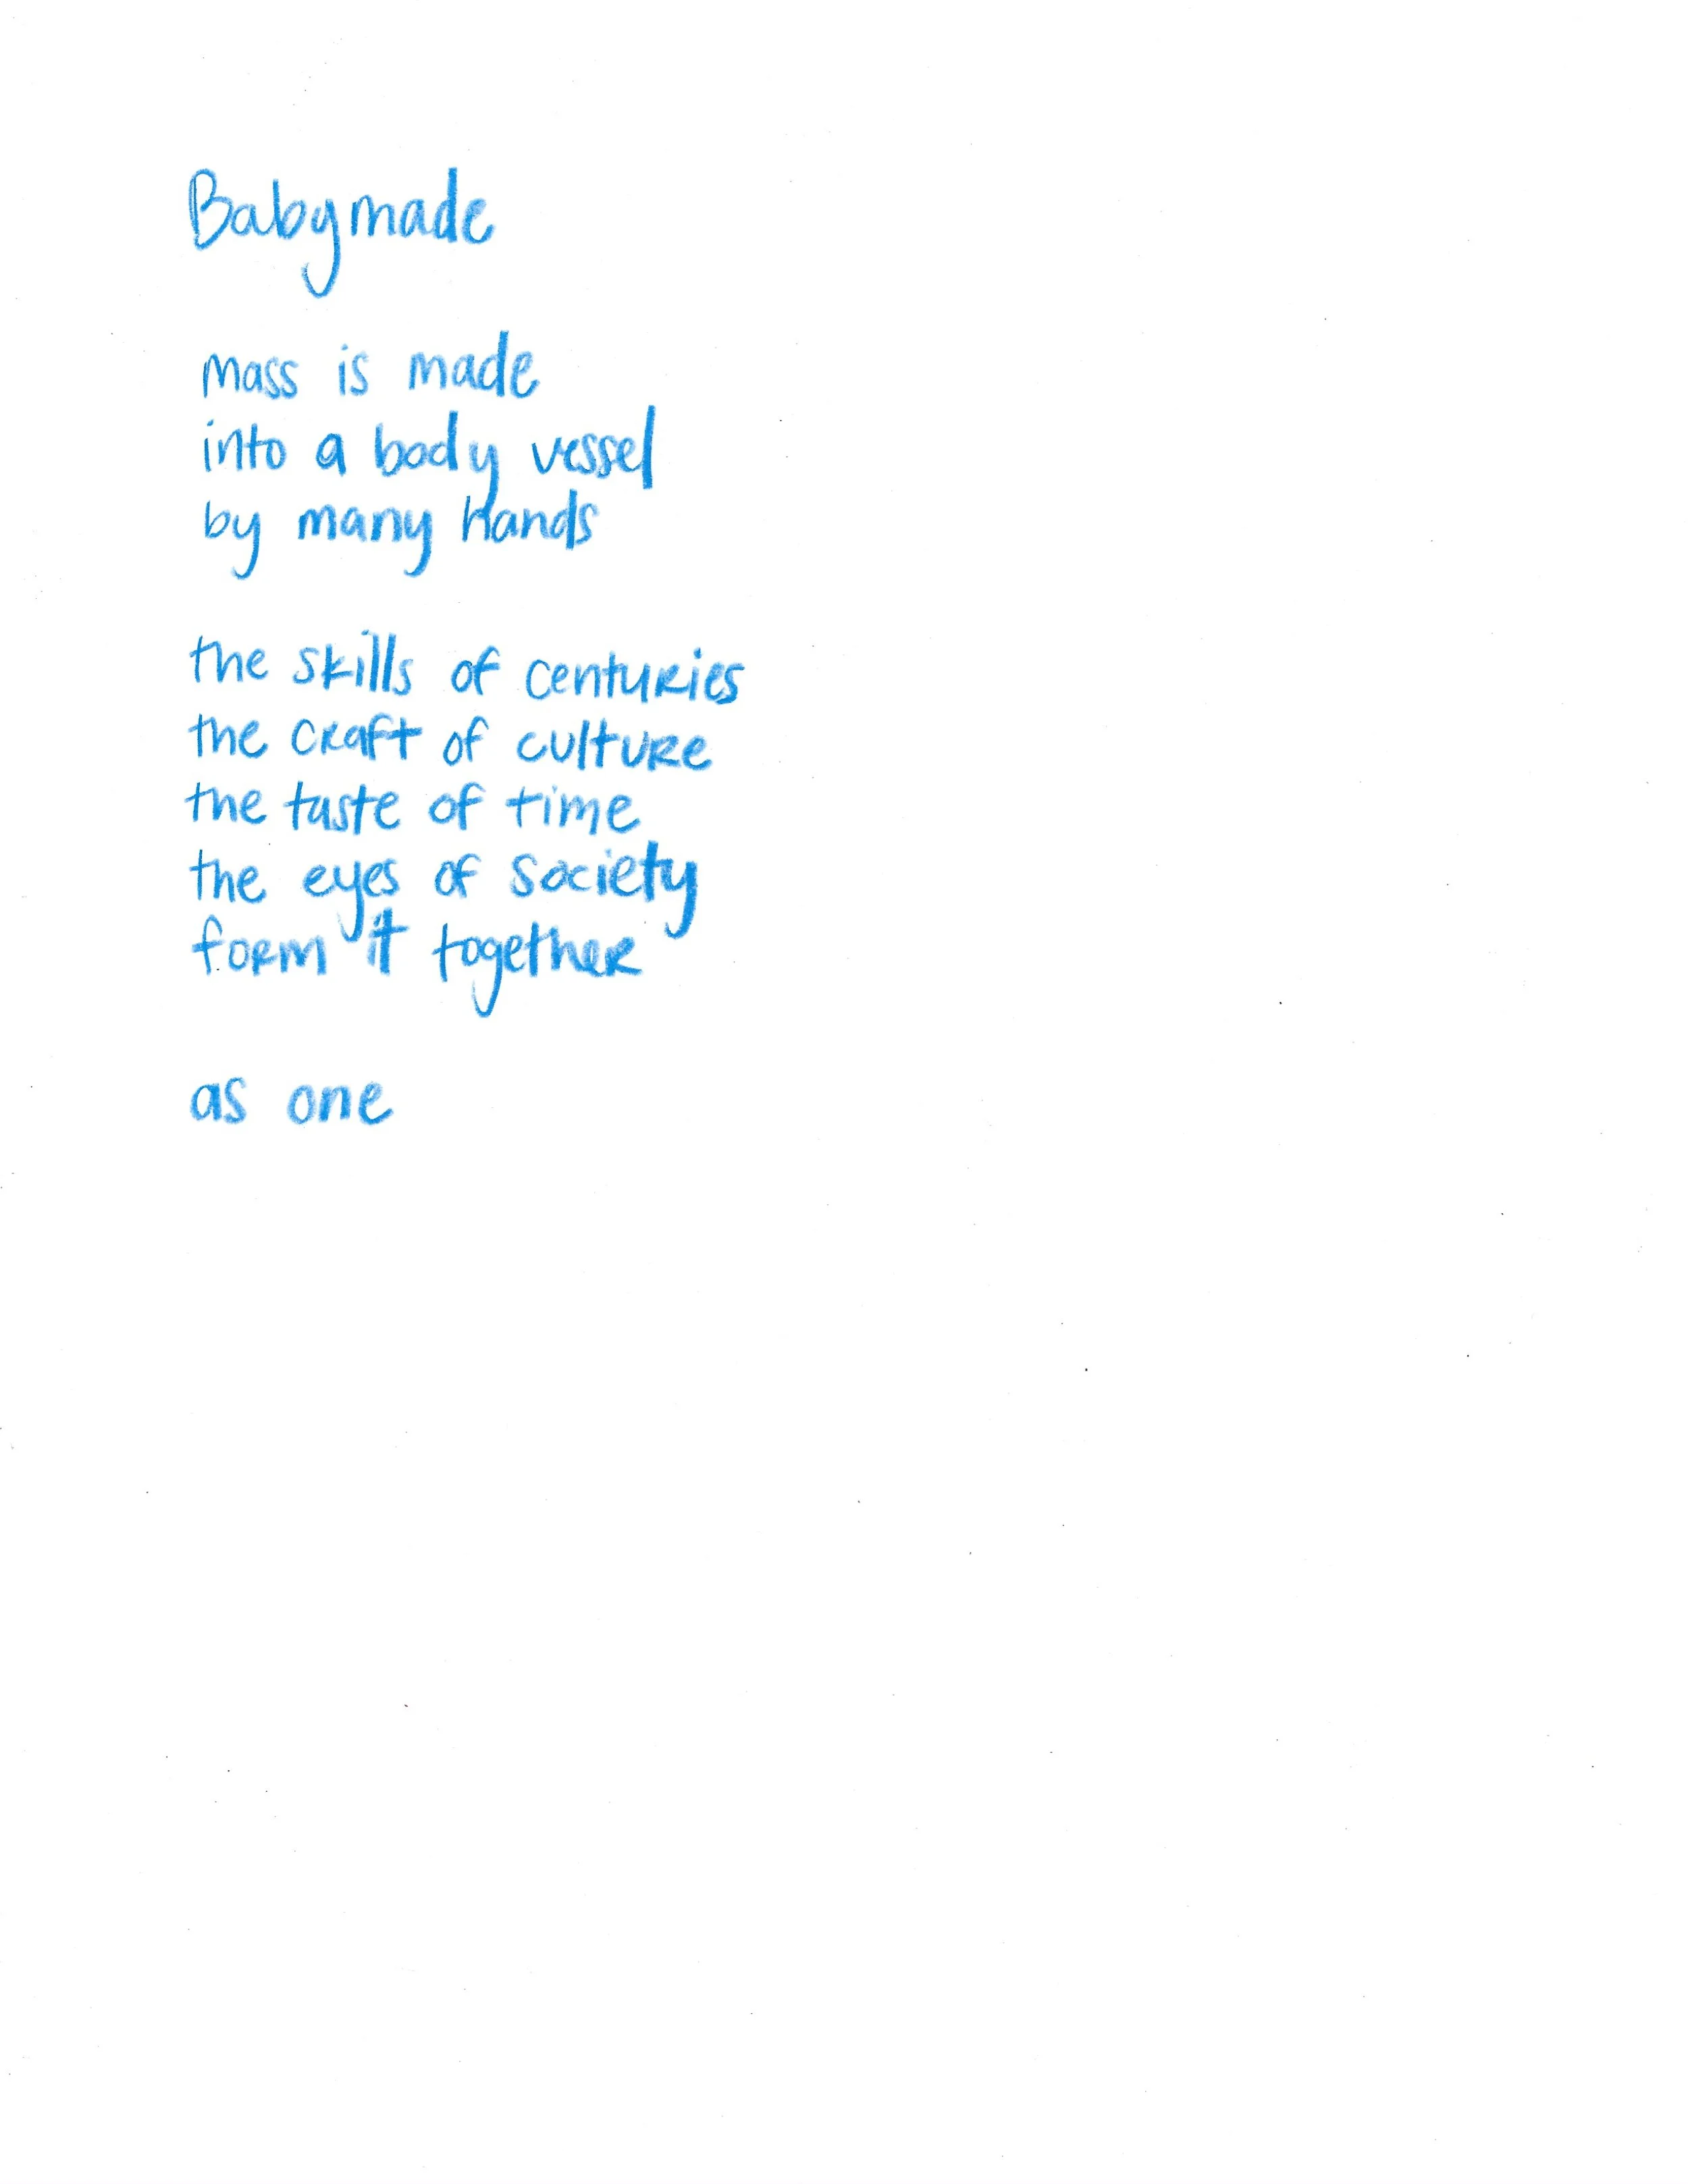 Babymade
mass is made
into a body vessel
by many hands
the skills of centuries
the craft of culture
the taste of time
the eyes of society
form it together
as one